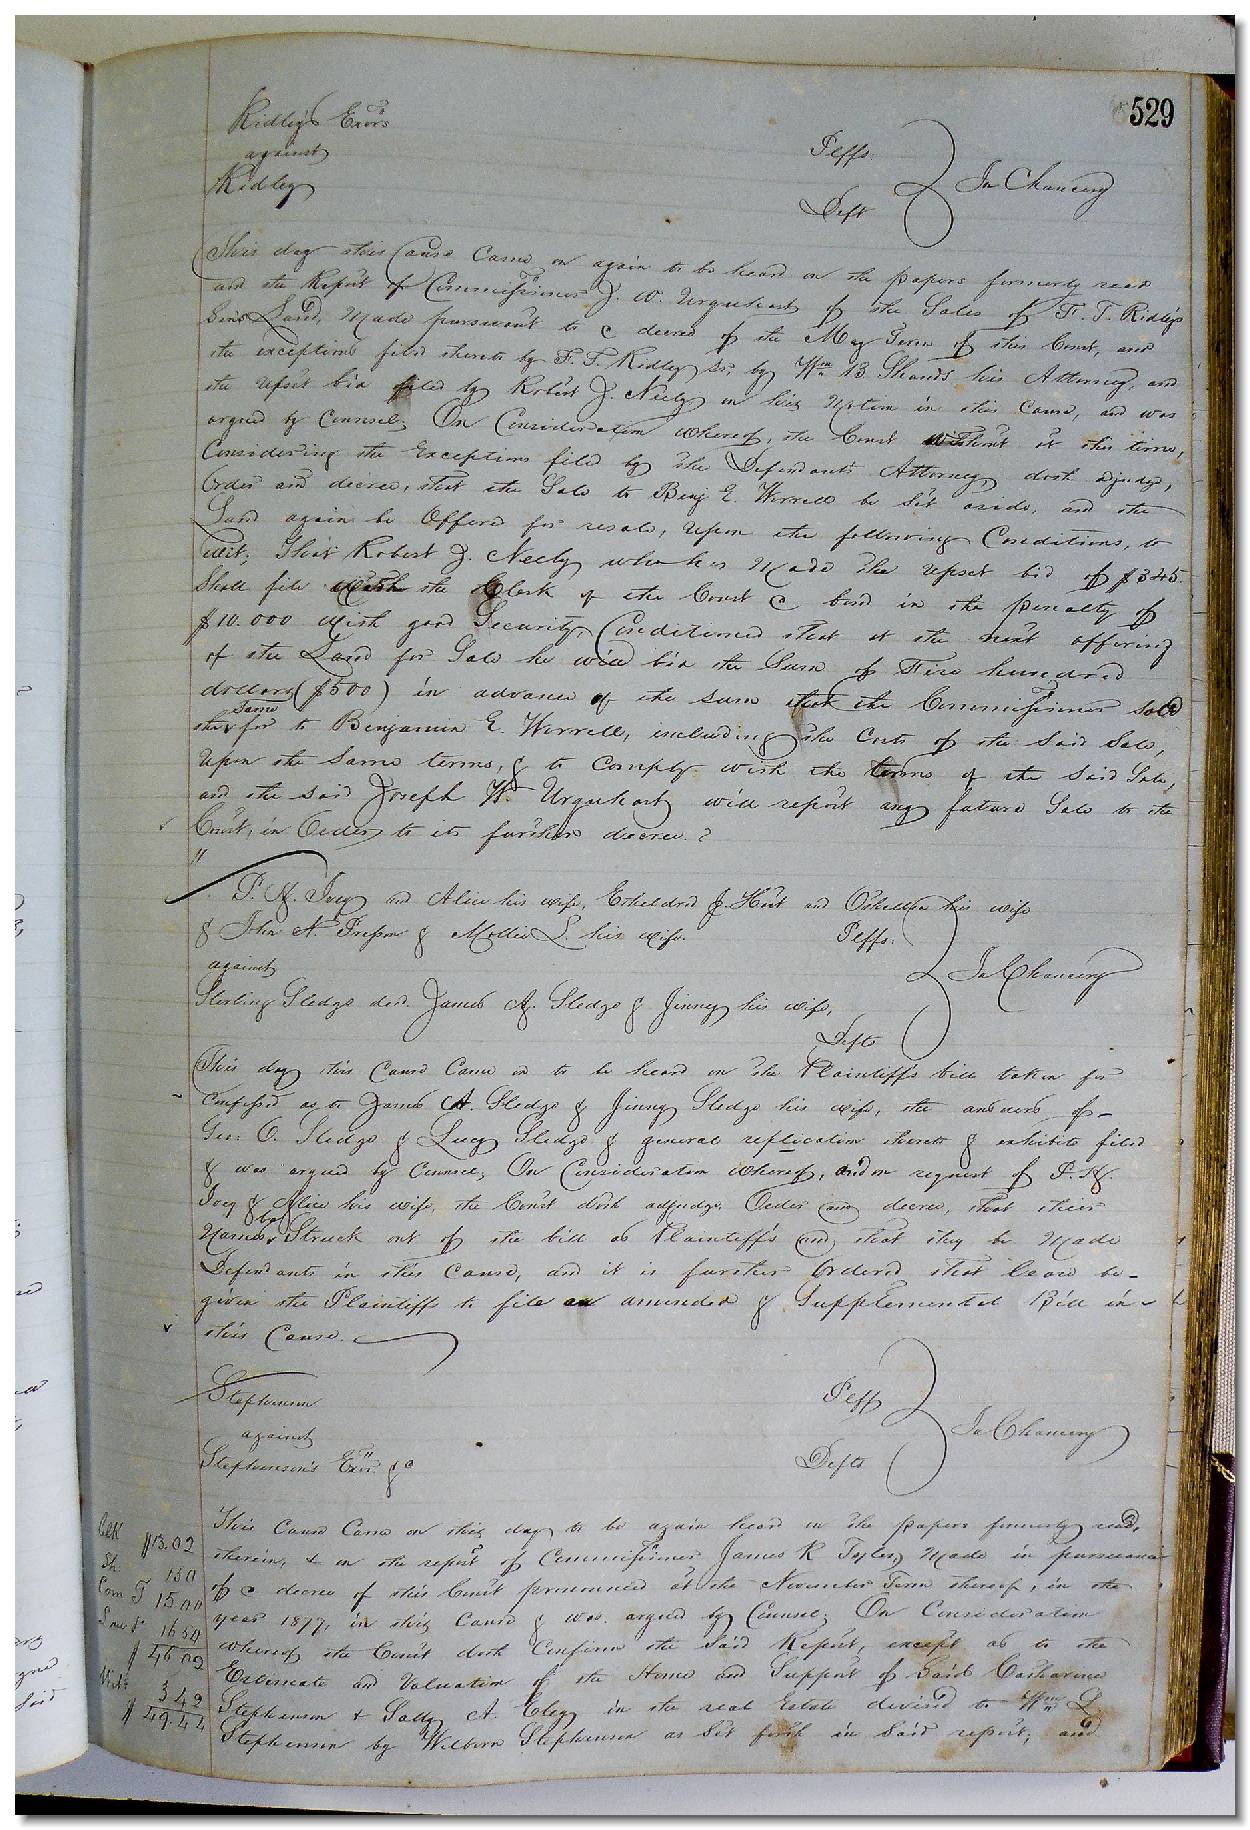 529
Ridley's Exors
against
Ridley
Plffs.
Deft
In Chancery
This day this Cause Came on again to be heard on the papers formerly read
and the Report of Commissioner J. W. Urquhart of the Sales of F. T. Ridley
Senr Land, Made pursuant to a decree of the May Term of this Court, and
the exceptions filed thereto by F. T. Ridley Sr, by Wm B. Shands his Attorney, and
the upset bid filed by Robert J. Neely in this cause, and was
argued by Counsel; On Consideration whereof, the Court without at this time,
Considering the Exceptions filed by the Defendants Attorney doth adjudge,
Order and decree, that the Sale to Benj E. Worrell be Set aside, and the
Land again be Offered for resale, Upon the following Conditions, to
wit; That Robert J. Neely who has Made the upset bid of $345.
Shall file with the Clerk of the Court a bond in the penalty of
$10.000 with good Security, Conditioned that at the next offering
of the Land for Sale he will bid the Sum of Five hundred
dollars ($500) in advance of the sum that the Commissioner sold
the same for to Benjamin E. Worrell, including the Costs of the Said Sale,
Upon the same terms, & to Comply with the terms of the Said Sale,
and the said Joseph W. Urquhart will report any future Sale to the
Court, in Order to its further decree.
P. H. Ivey and Alice his wife, Etheldred J. Hart and his wife
& John A. & Mollie L. his wife.
Plffs.
against
Sterling Sledge decd. James A. Sledge & Jinny his wife,
Defts
In Chancery
This day this Cause Came on to be heard on the Plaintiffs bill taken for
Confessed as to James A. Sledge & Jinny Sledge his wife, the answers of
Geo: O. Sledge & Lucy Sledge & general replication thereto & exhibits filed
& was argued by Counsel; On Consideration whereof, and on request of P. H.
Ivey & Alice his wife, the Court doth adjudge, Order and decree, that their
Names be Struck out of the bill as Plaintiffs and that they be Made
Defendants in this Cause, and it is further Ordered that leave be
given the Plaintiffs to file an amended & Supplemental Bill in
this Cause.
Stephenson
against
Stephenson's Exor. &c
Plff
Defts
In Chancery
This Cause Came on this day to be again heard on the papers formerly read,
therein, & on the report of Commissioner James R Tyler, Made in pursuance
of a decree of this Court pronounced at the November Term thereof, in the
year 1877, in this Cause & was argued by Counsel; On Consideration
whereof the Court doth Confirm the Said Report, except as to the
Estimate and Valuation of the Home and Support of Said Catharine
Stephenson & Sally A. Eley in the real Estate devised to Wm L
Stephenson by Wilborn Stephenson as Set forth in Said report; and
Clk $13.02
Sh. 1 50
Com T 15 00
16 50
$ 46 02
3 42
$ 49.44